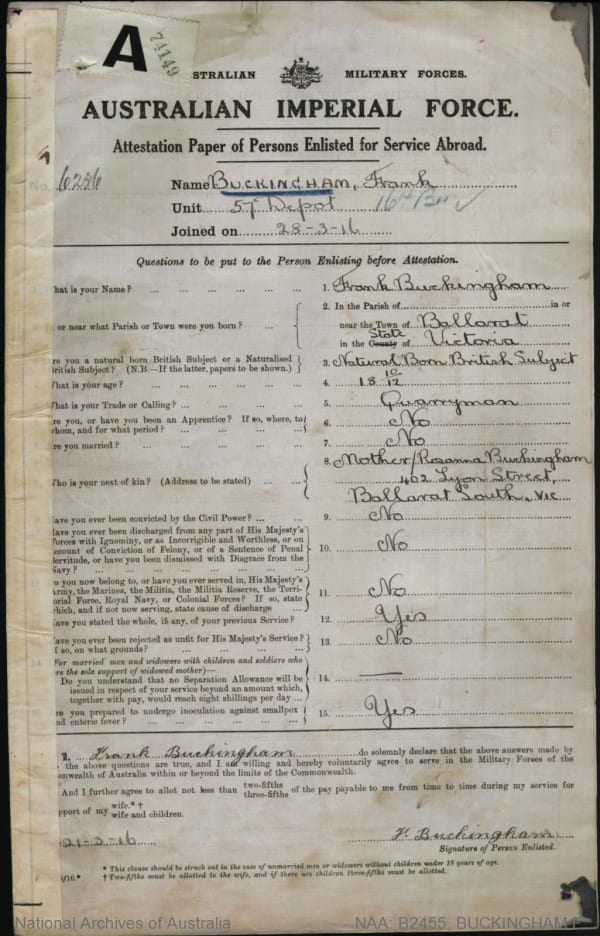 A 74149
STRALIAN MILITARY FORCES.
AUSTRALIAN IMPERIAL FORCE.
Attestation Paper of Persons Enlisted for Service Abroad.
No. 6256
Name BUCKINGHAM, Frank
Unit 57th Depot 16th Bn
Joined on 28-3-16
Questions to be put to the Person Enlisting before Attestation.
hat is your Name? ... 1. Frank Buckingham
2. In the Parish of ... in or
or near what Parish or Town were you born? ... near the Town of Ballarat
in the County State of Victoria
re you a natural born British Subject or a Naturalised
ritish Subject? (N.B.—If the latter, papers to be shown.) 3. Natural Born British Subject
hat is your age? ... 4. 18 10/12
hat is your Trade or Calling? ... 5. Quarryman
re you, or have you been an Apprentice? If so, where, to
hom, and for what period? ... 6. No
re you married? ... 7. No
8. Mother/Rosanna Buckingham
ho is your next of kin? (Address to be stated) ... 402 Lyon Street,
Ballarat South, Vic
ave you ever been convicted by the Civil Power? ... 9. No
ave you ever been discharged from any part of His Majesty's
orces with Ignominy, or as Incorrigible and Worthless, or on
ccount of Conviction of Felony, or of a Sentence of Penal
ervitude, or have you been dismissed with Disgrace from the
avy? ... 10. No
o you now belong to, or have you ever served in, His Majesty's
rmy, the Marines, the Militia, the Militia Reserve, the Terri-
orial Force, Royal Navy, or Colonial Forces? If so, state
hich, and if not now serving, state cause of discharge 11. No
ave you stated the whole, if any, of your previous Service? 12. Yes
ave you ever been rejected as unfit for His Majesty's Service?
f so, on what grounds? ... 13. No
For married men and widowers with children and soldiers who
re the sole support of widowed mother)—
Do you understand that no Separation Allowance will be
issued in respect of your service beyond an amount which,
together with pay, would reach eight shillings per day ... 14. —
re you prepared to undergo inoculation against smallpox
nd enteric fever? ... 15. Yes
I, Frank Buckingham do solemnly declare that the above answers made by
the above questions are true, and I am willing and hereby voluntarily agree to serve in the Military Forces of the
onwealth of Australia within or beyond the limits of the Commonwealth.
And I further agree to allot not less than two-fifths three-fifths of the pay payable to me from time to time during my service for
pport of my wife.*† wife and children.
21-3-16 F. Buckingham
Signature of Person Enlisted.
* This clause should be struck out in the case of unmarried men or widowers without children under 18 years of age.
/16.* † Two-fifths must be allotted to the wife, and if there are children three-fifths must be allotted.
National Archives of Australia NAA: B2455, BUCKINGHAM F